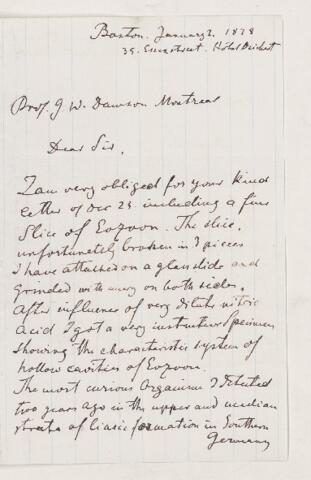 Boston. January 2. 1878
35. Essex street. Hôtel
Prof. J W. Dawson Montreal
Dear Sir,
I am very obliged for your kind
letter of Dec 25. including a fine
Slice of Eozoon. The slice,
unfortunately broken in 3 pieces
I have attached on a glasslide and
grinded with emery on both sides.
After influence of very dilute nitric
Acid I got a very instructive Specimen
showing the characteristic system of
hollow cavities of Eozoon.
The most curious Organism I detected
two years ago in the upper and median
strata of liasic formation in Southern
Germany